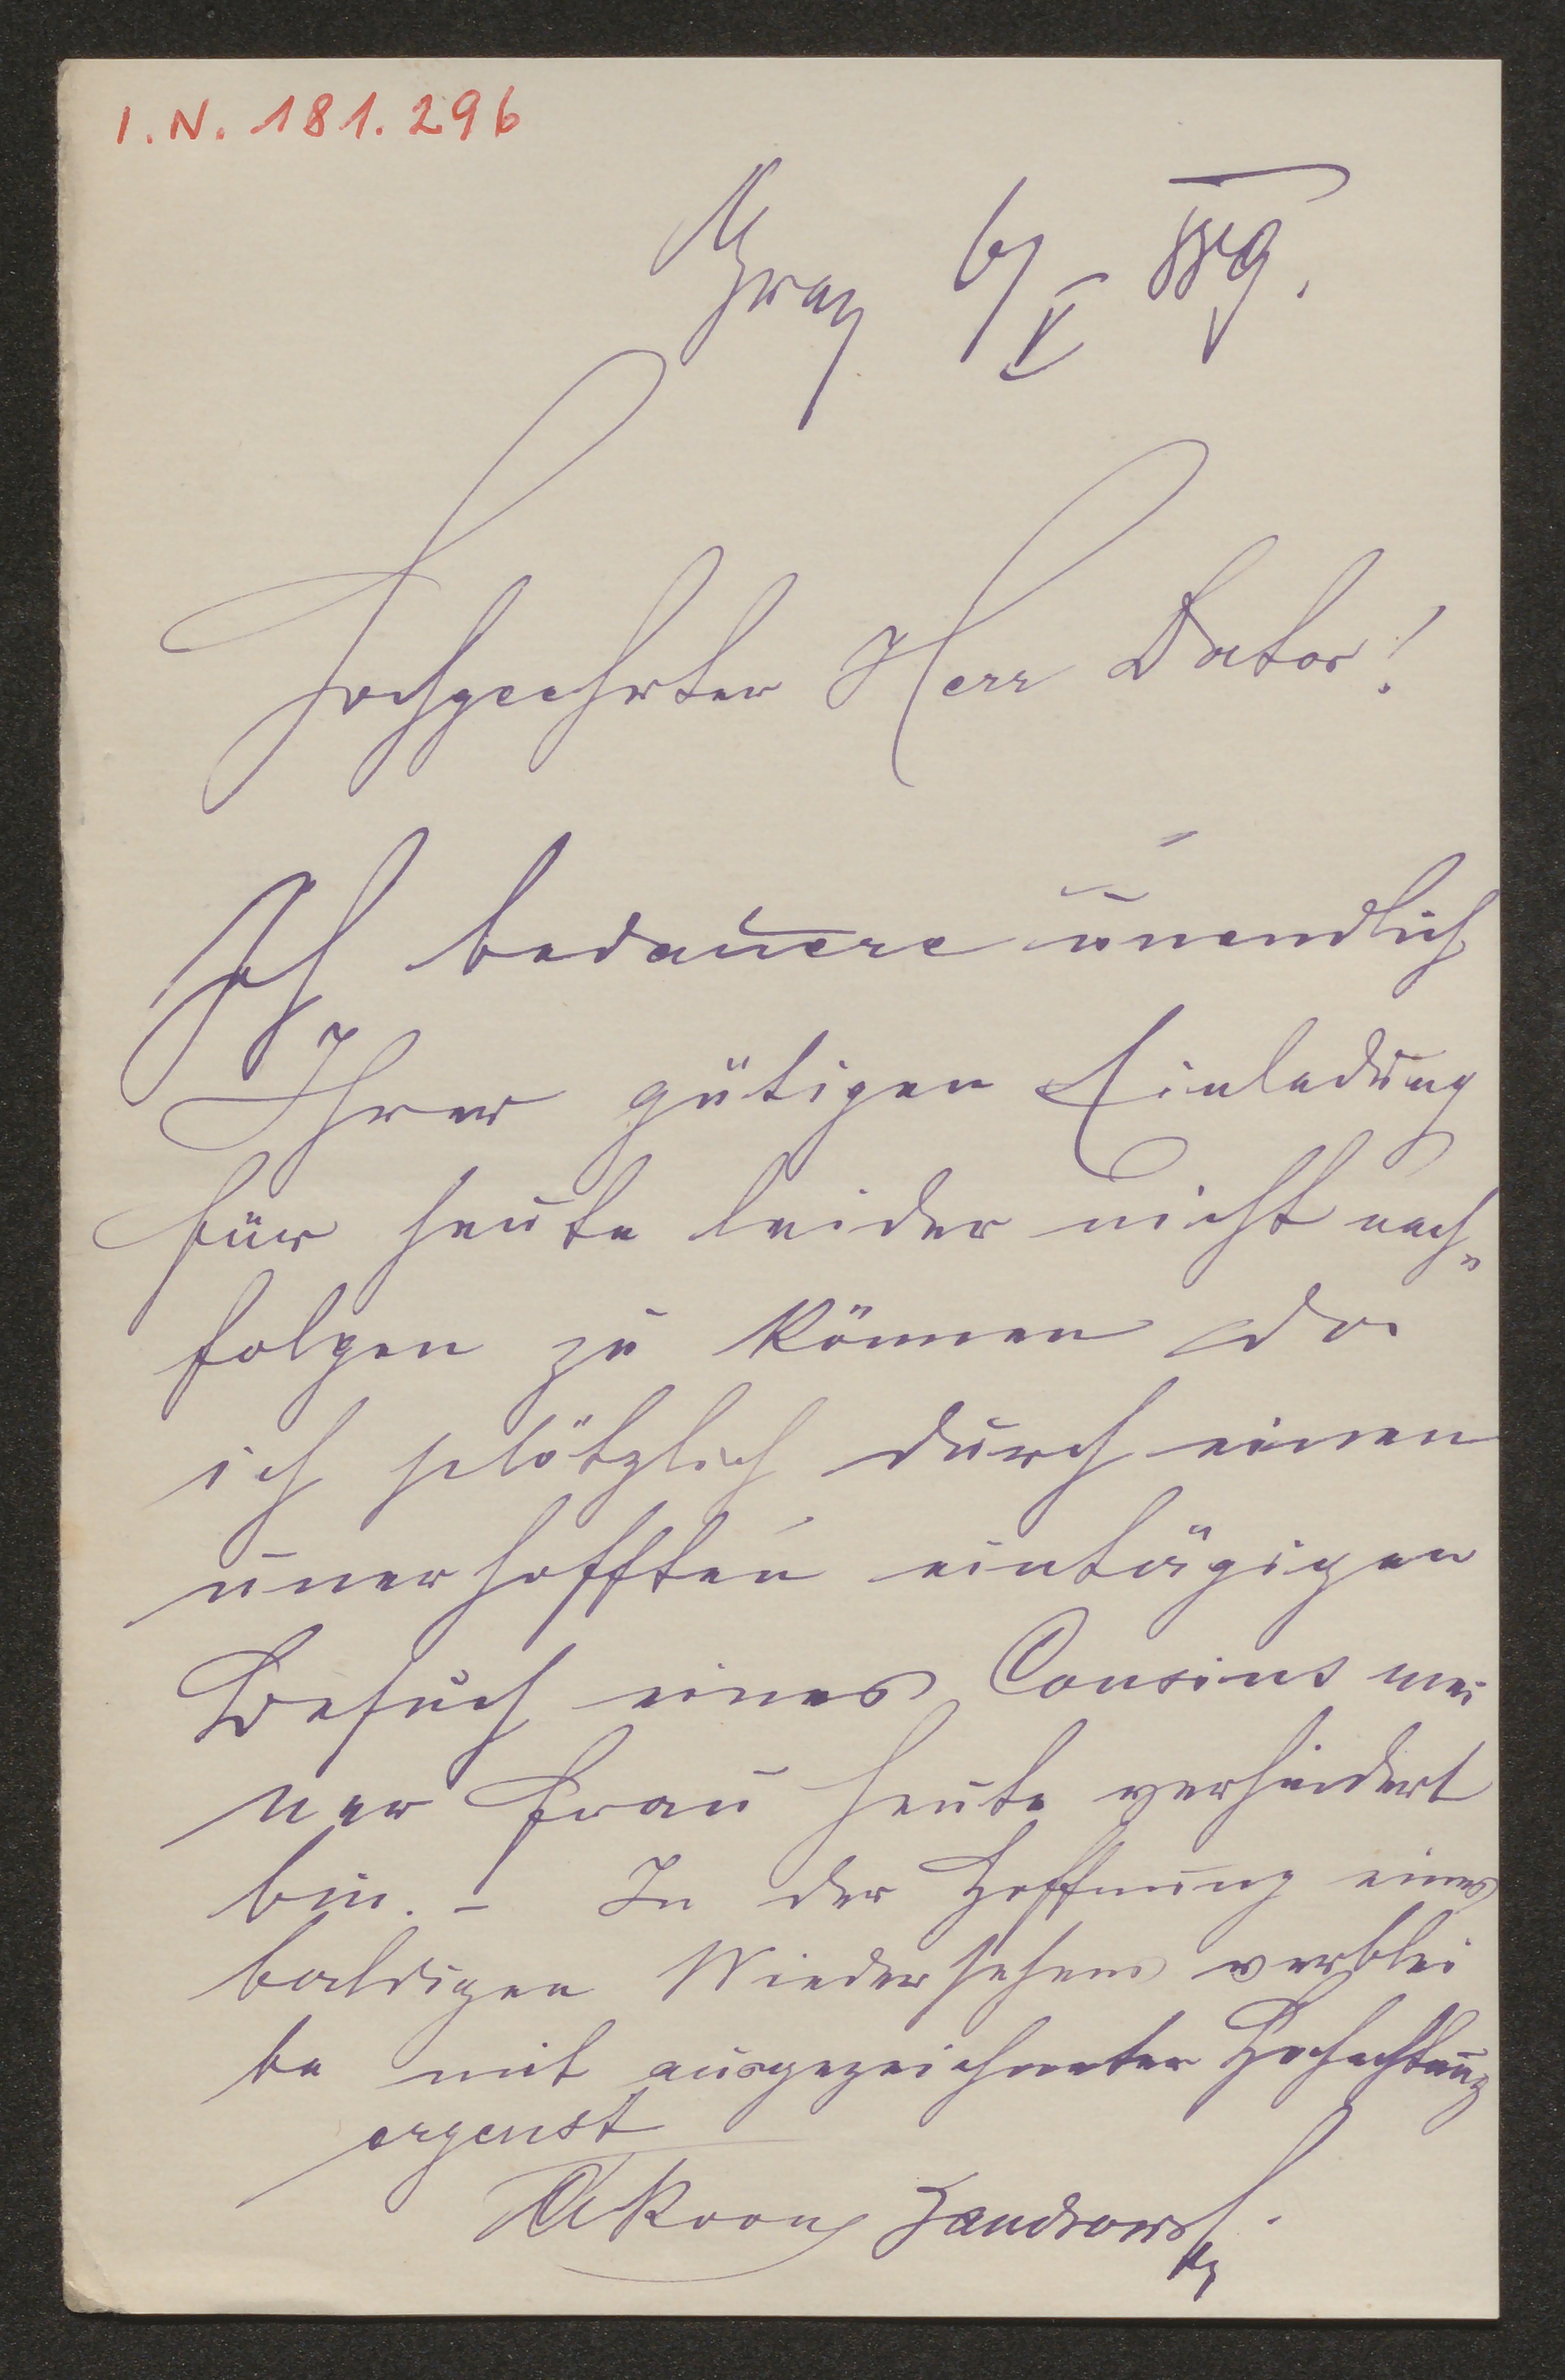 I.N. 181.296
Graz 6/V 889.
Hochgeehrter Herr Doktor!
Ich bedauere unendlich
Ihrer gütigen Einladung
für heute leider nicht nach=
folgen zu können da
ich plötzlich durch einen
unerhofften eintägigen
Besuch eines Cousins mei
ner Frau heute verhindert
bin. – In der Hoffnung eines
baldigen Wiedersehens verblei
be mit ausgezeichneter Hochachtung
ergenst